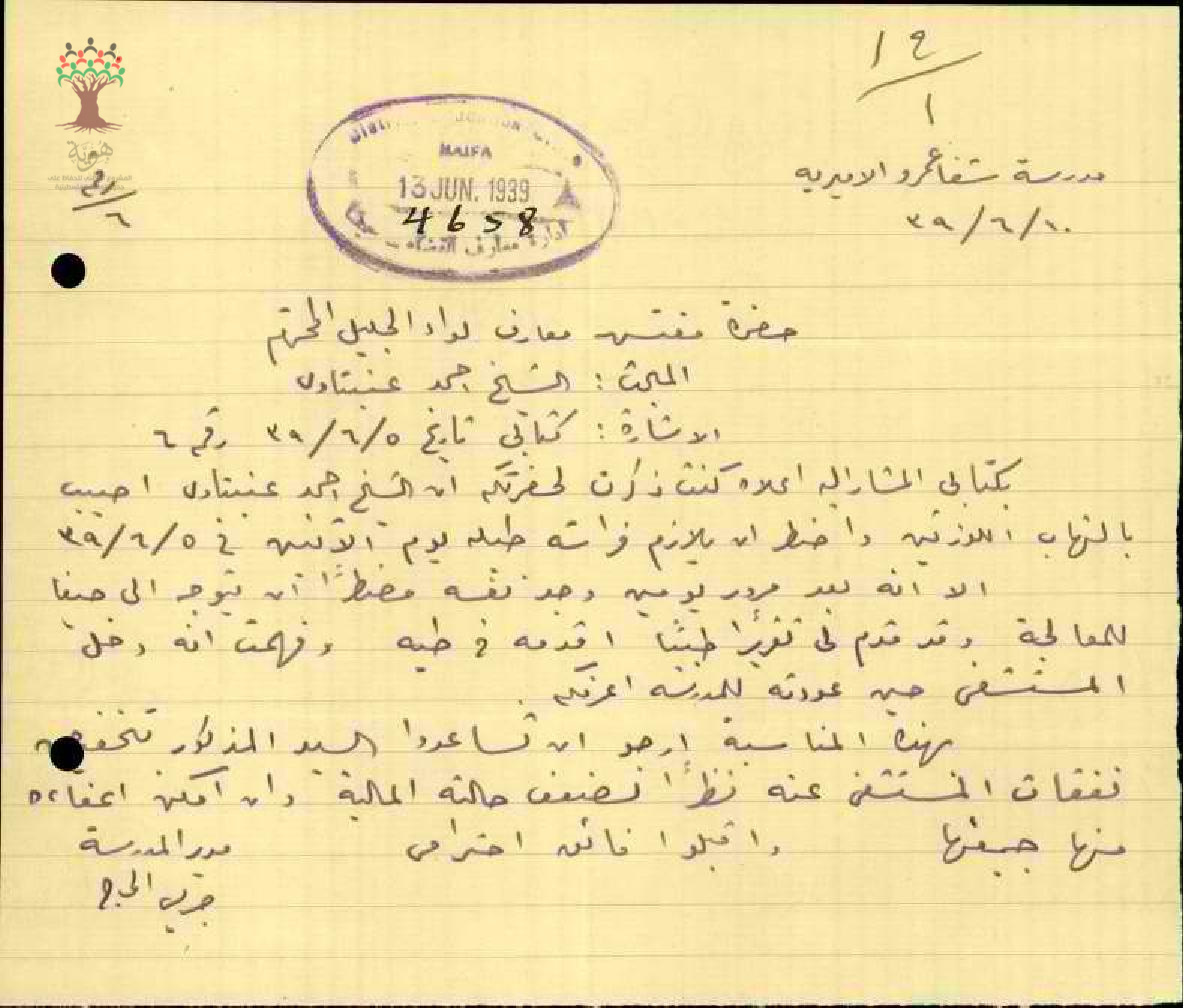 ١٩
١
مدرسة شفاعمرو الاميرية
٣٩/٦/١٠
HAIFA
13 JUN. 1939
4658
ادارة معارف القضاء
هوية
٦
حضرة مفتش معارف لواء الجليل المحترم
المبحث : الشيخ احمد عنبتاوي
الاشارة : كتابي تاريخ ٣٩/٦/٥ رقم ٦
بكتابي المشار اليه اعلاه كنت ذكرت لحضرتكم ان الشيخ احمد عنبتاوي اصيب
بالتهاب اللوزتين واضطر ان يلازم فراشه طيلة يوم الاثنين في ٣٩/٦/٥
الا انه بعد مرور يومين وجد نفسه مضطراً ان يتوجه الى حيفا
للمعالجة وقد قدم لي تقريراً طبيا اقدمه في طيه وفهمت انه دخل
المستشفى حين عودته للمدرسة اعرفكم
بهذه المناسبة ارجو ان تساعدوا السيد المذكور بتخفيض
نفقات المستشفى عنه نظراً لضعف حالته المالية وان امكن اعفاءه
منها جميعها واقبلوا فائق احترامي مدير المدرسة